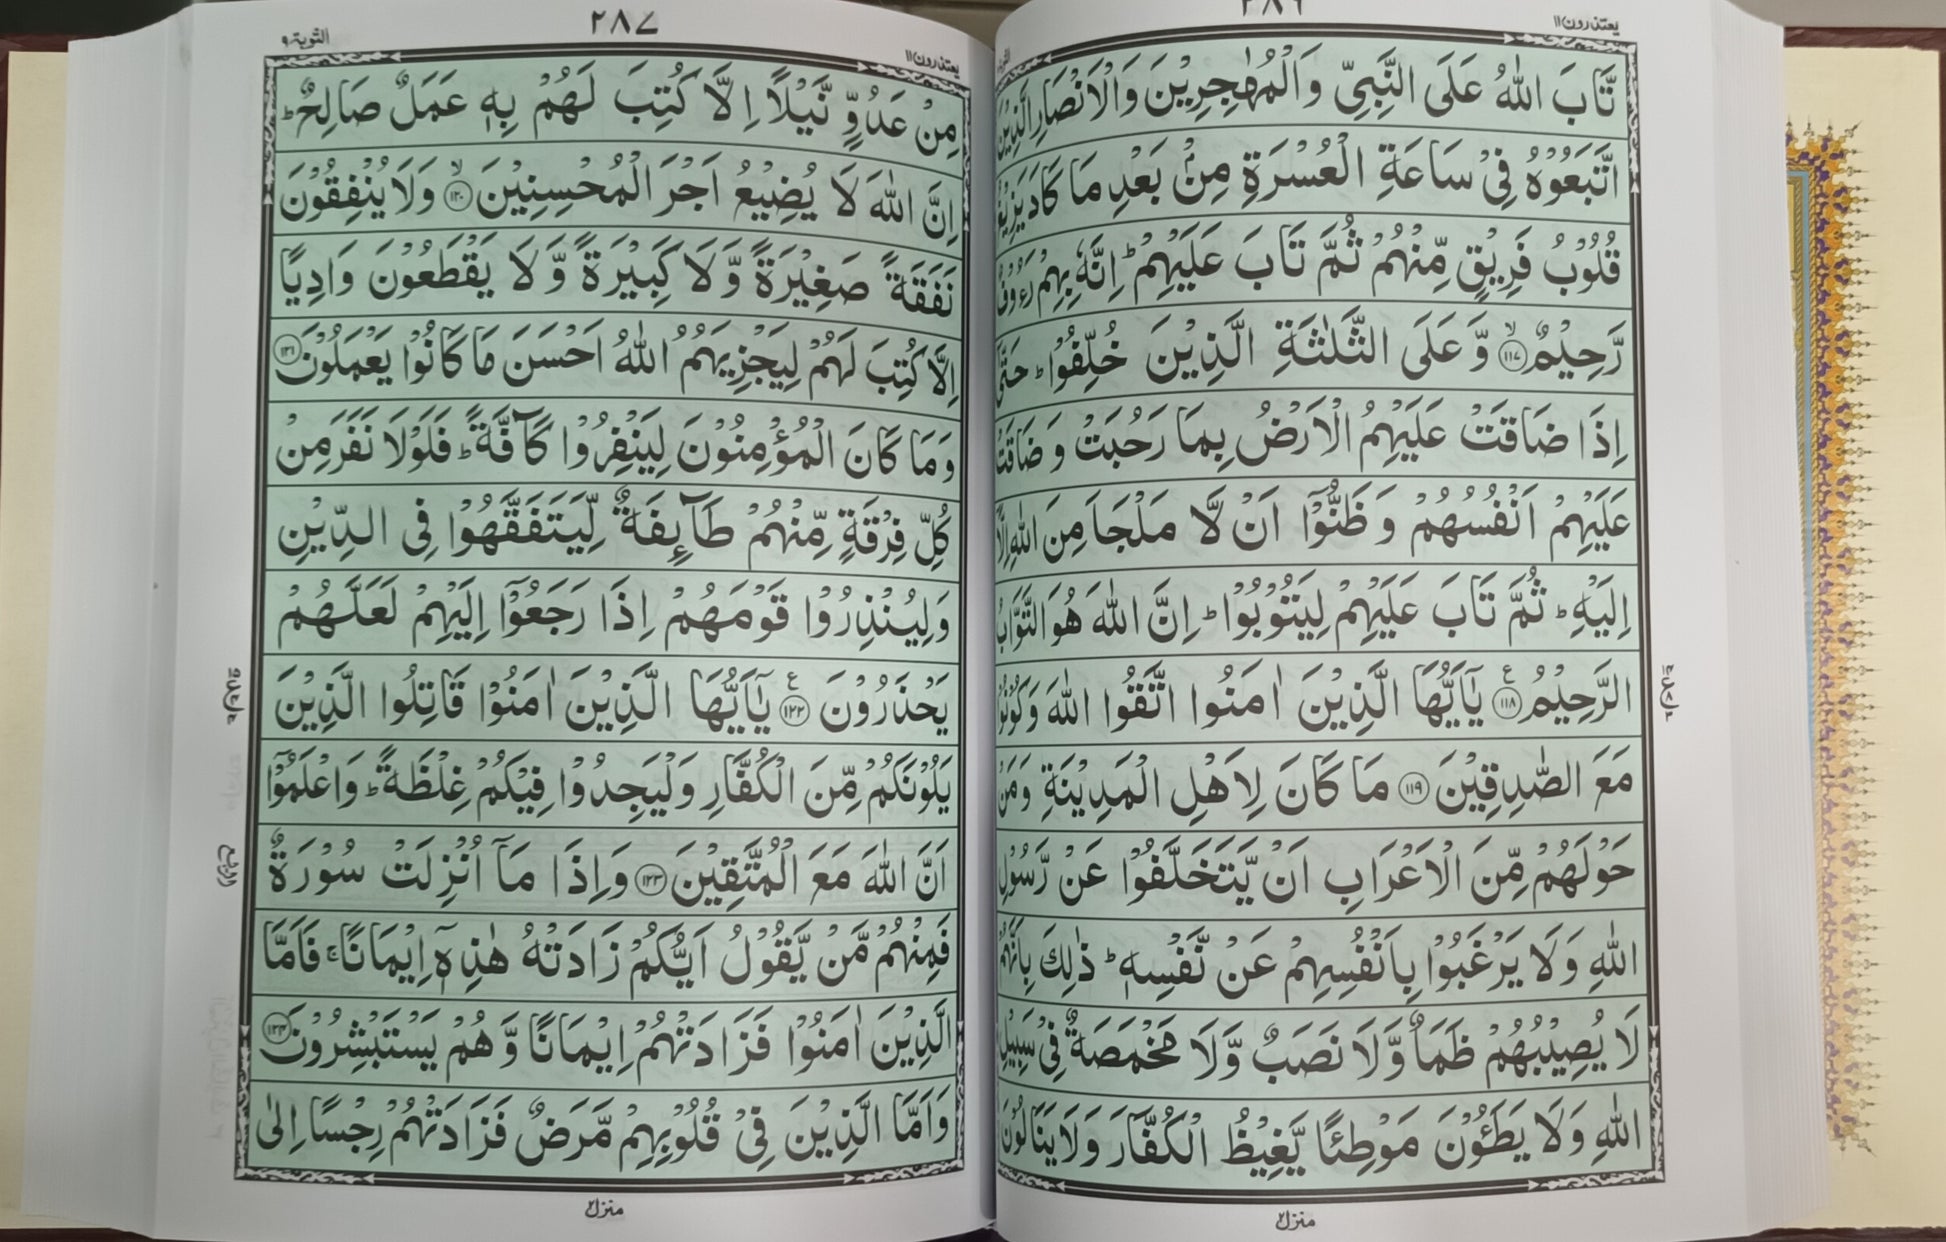 يعتذرون ۱۱
تَّابَ اللّٰهُ عَلَى النَّبِىِّ وَالْمُهٰجِرِيْنَ وَالْاَنْصَارِ الَّذِيْنَ
اتَّبَعُوْهُ فِىْ سَاعَةِ الْعُسْرَةِ مِنْۢ بَعْدِ مَا كَادَ يَزِيْغُ
قُلُوْبُ فَرِيْقٍ مِّنْهُمْ ثُمَّ تَابَ عَلَيْهِمْ ؕ اِنَّهٗ بِهِمْ رَءُوْفٌ
رَّحِيْمٌ ۙ‏﴿۱۱۷﴾ وَّعَلَى الثَّلٰثَةِ الَّذِيْنَ خُلِّفُوْا ؕ حَتّٰۤى
اِذَا ضَاقَتْ عَلَيْهِمُ الْاَرْضُ بِمَا رَحُبَتْ وَضَاقَتْ
عَلَيْهِمْ اَنْفُسُهُمْ وَظَنُّوْۤا اَنْ لَّا مَلْجَاَ مِنَ اللّٰهِ اِلَّاۤ
اِلَيْهِ ؕ ثُمَّ تَابَ عَلَيْهِمْ لِيَتُوْبُوْا ؕ اِنَّ اللّٰهَ هُوَ التَّوَّابُ
الرَّحِيْمُ ﴿۱۱۸﴾ ع يٰۤاَيُّهَا الَّذِيْنَ اٰمَنُوا اتَّقُوا اللّٰهَ وَكُوْنُوْا
مَعَ الصّٰدِقِيْنَ ﴿۱۱۹﴾ مَا كَانَ لِاَهْلِ الْمَدِيْنَةِ وَمَنْ
حَوْلَهُمْ مِّنَ الْاَعْرَابِ اَنْ يَّتَخَلَّفُوْا عَنْ رَّسُوْلِ
اللّٰهِ وَلَا يَرْغَبُوْا بِاَنْفُسِهِمْ عَنْ نَّفْسِهٖ ؕ ذٰلِكَ بِاَنَّهُمْ
لَا يُصِيْبُهُمْ ظَمَاٌ وَّلَا نَصَبٌ وَّلَا مَخْمَصَةٌ فِىْ سَبِيْلِ
اللّٰهِ وَلَا يَطَـُٔوْنَ مَوْطِئًا يَّغِيْظُ الْكُفَّارَ وَلَا يَنَالُوْنَ
منزل۲
التوبة ۹
۲۸۷
يعتذرون ۱۱
مِنْ عَدُوٍّ نَّيْلًا اِلَّا كُتِبَ لَهُمْ بِهٖ عَمَلٌ صَالِحٌ ؕ
اِنَّ اللّٰهَ لَا يُضِيْعُ اَجْرَ الْمُحْسِنِيْنَ ۙ‏﴿۱۲۰﴾ وَلَا يُنْفِقُوْنَ
نَفَقَةً صَغِيْرَةً وَّلَا كَبِيْرَةً وَّلَا يَقْطَعُوْنَ وَادِيًا
اِلَّا كُتِبَ لَهُمْ لِيَجْزِيَهُمُ اللّٰهُ اَحْسَنَ مَا كَانُوْا يَعْمَلُوْنَ ﴿۱۲۱﴾
وَمَا كَانَ الْمُؤْمِنُوْنَ لِيَنْفِرُوْا كَآفَّةً ؕ فَلَوْلَا نَفَرَ مِنْ
كُلِّ فِرْقَةٍ مِّنْهُمْ طَآىِٕفَةٌ لِّيَتَفَقَّهُوْا فِى الدِّيْنِ
وَلِيُنْذِرُوْا قَوْمَهُمْ اِذَا رَجَعُوْۤا اِلَيْهِمْ لَعَلَّهُمْ
يَحْذَرُوْنَ ﴿۱۲۲﴾ ع يٰۤاَيُّهَا الَّذِيْنَ اٰمَنُوْا قَاتِلُوا الَّذِيْنَ
يَلُوْنَكُمْ مِّنَ الْكُفَّارِ وَلْيَجِدُوْا فِيْكُمْ غِلْظَةً ؕ وَاعْلَمُوْۤا
اَنَّ اللّٰهَ مَعَ الْمُتَّقِيْنَ ﴿۱۲۳﴾ وَاِذَا مَاۤ اُنْزِلَتْ سُوْرَةٌ
فَمِنْهُمْ مَّنْ يَّقُوْلُ اَيُّكُمْ زَادَتْهُ هٰذِهٖۤ اِيْمَانًا ۚ فَاَمَّا
الَّذِيْنَ اٰمَنُوْا فَزَادَتْهُمْ اِيْمَانًا وَّهُمْ يَسْتَبْشِرُوْنَ ﴿۱۲۴﴾
وَاَمَّا الَّذِيْنَ فِىْ قُلُوْبِهِمْ مَّرَضٌ فَزَادَتْهُمْ رِجْسًا اِلٰى
منزل۲